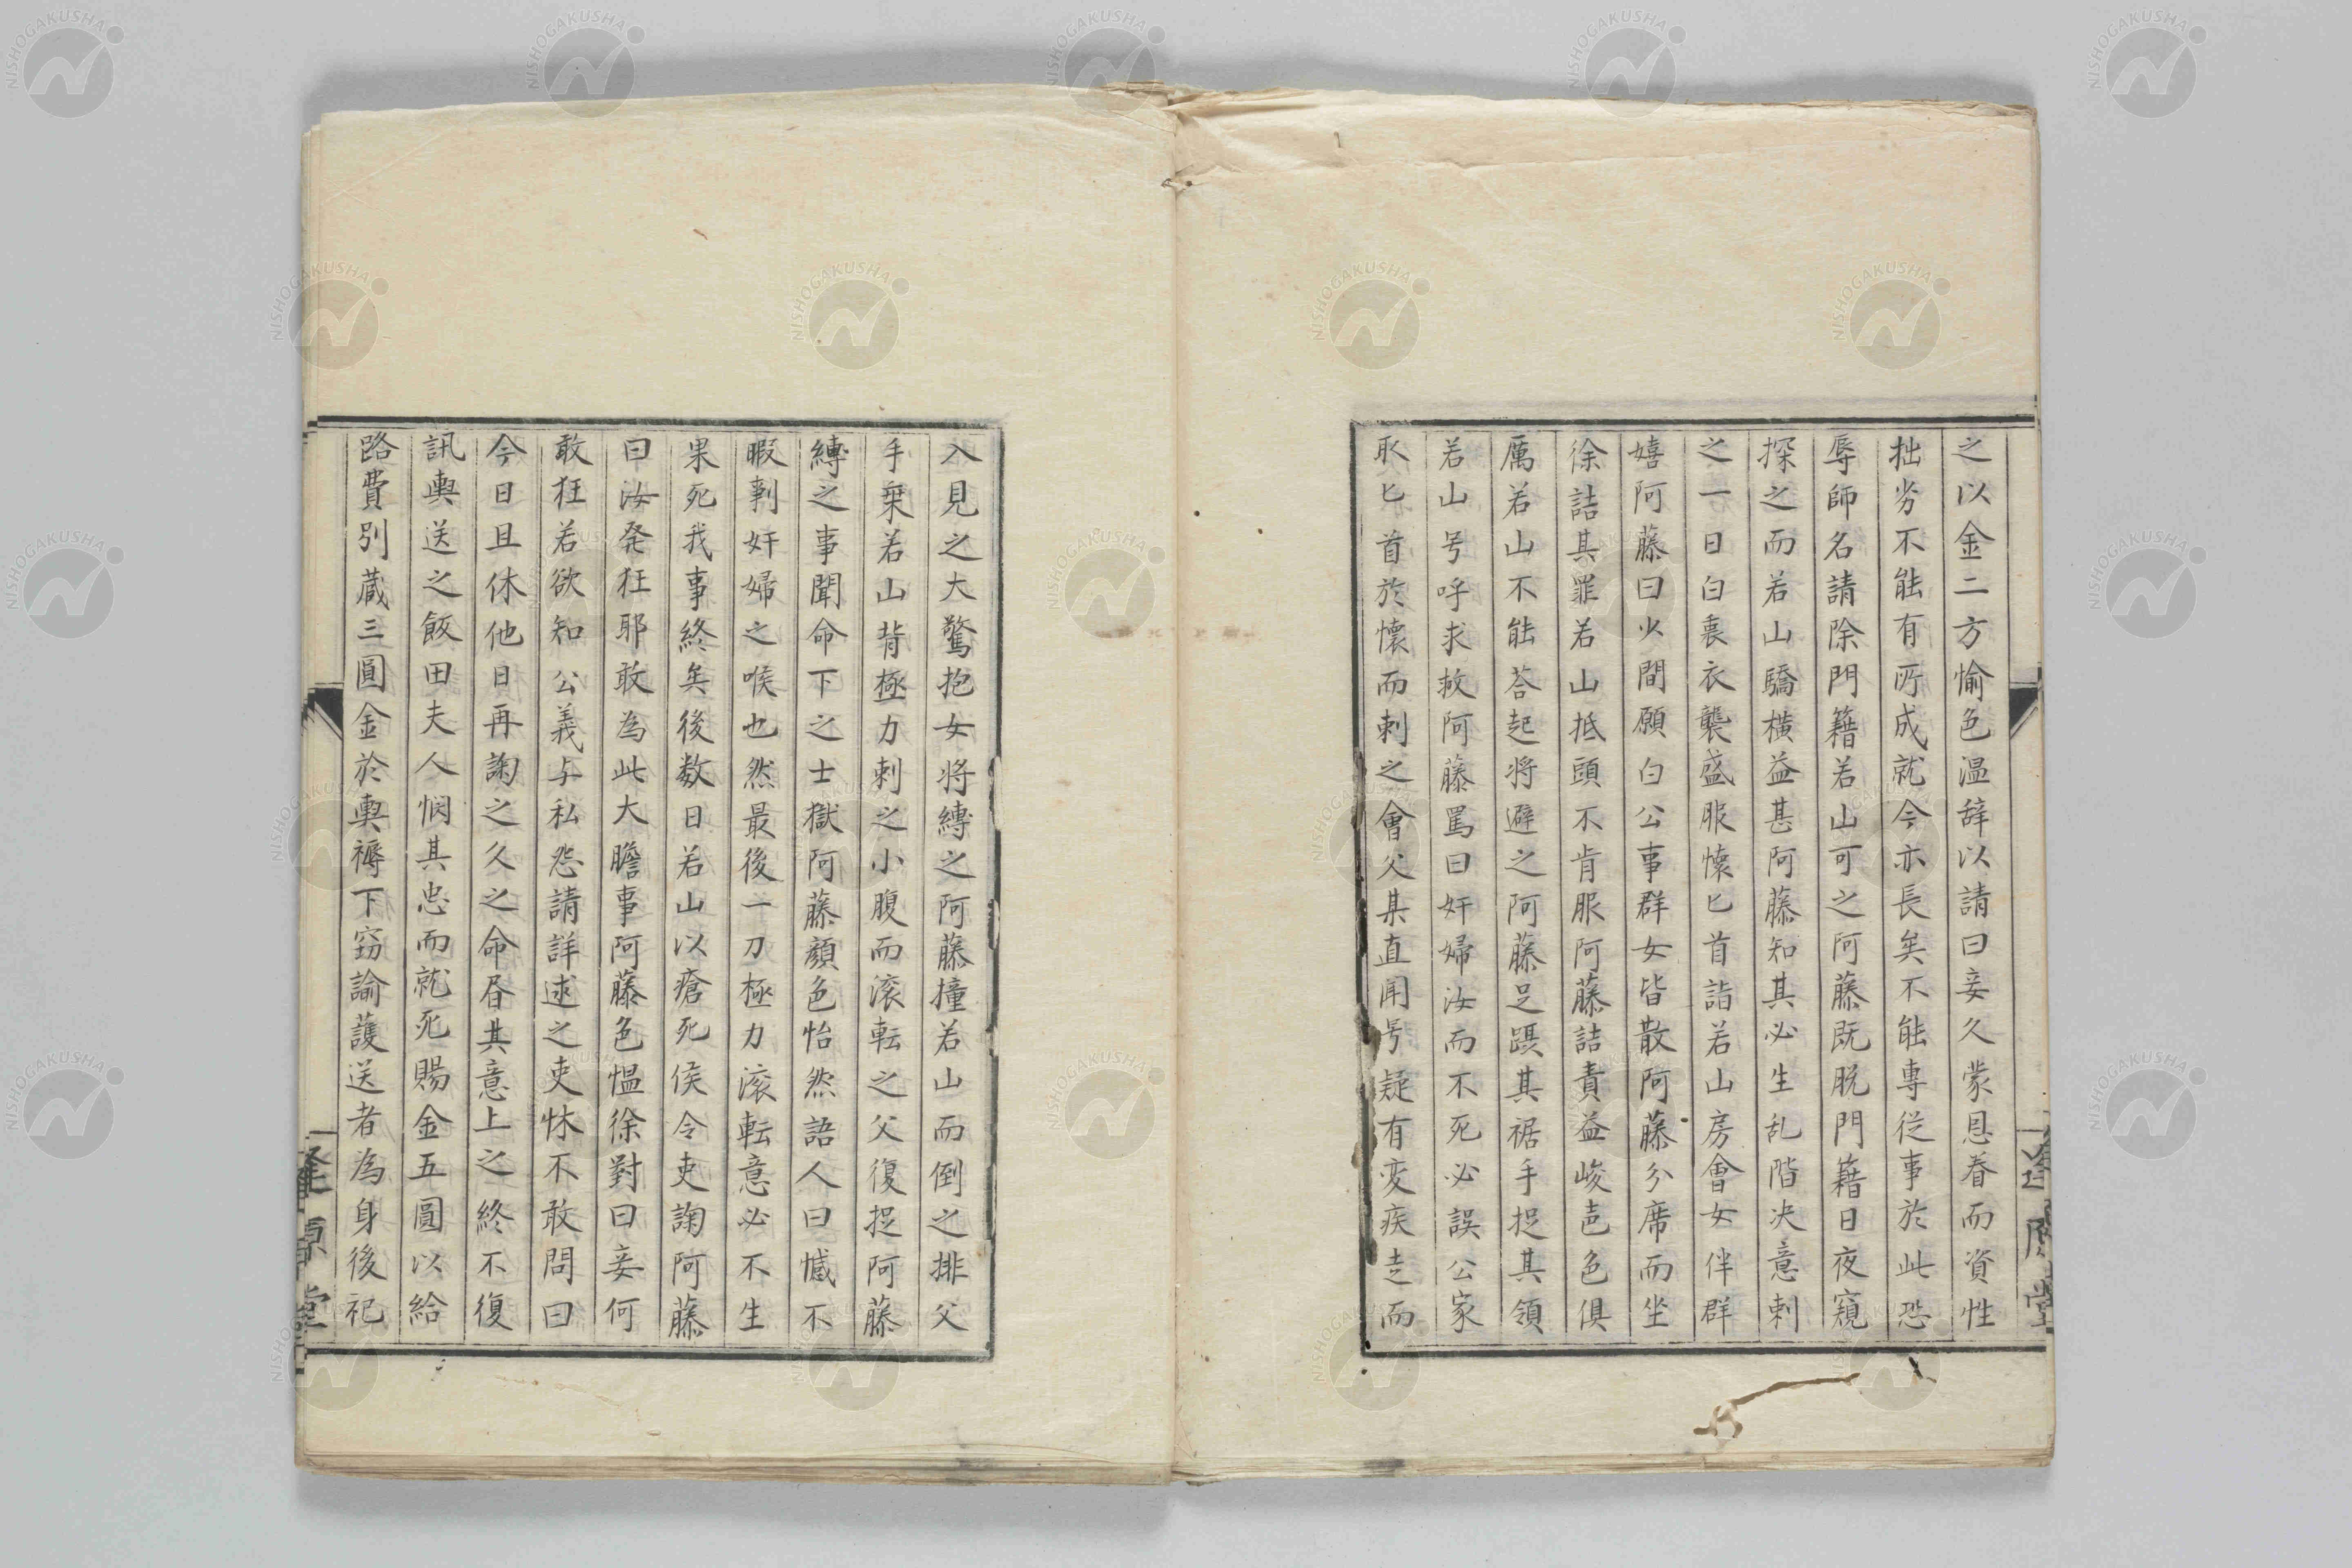 之以金二方愉色温辞以請曰妾久蒙恩眷而資性
拙劣不能有所成就今亦長矣不能專従事於此恐
辱師名請除門籍若山可之阿藤既脱門藉日夜窺
探之而若山驕横益甚阿藤知其必生乱階决意刺
之一日白裏衣襲盛服懐匕首詣若山房會女伴群
嬉阿藤曰少間願白公事群女皆散阿藤分席而坐
徐詰其罪若山抵頭不肯服阿藤詰責益峻声色倶
厲若山不能荅起将避之阿藤足踶其裾手捉其領
若山号呼求救阿藤罵曰奸婦汝而不死必誤公家
取匕首於懐而刺之會父某直聞号疑有変疾走而
入見之大驚抱女将縛之阿藤撞若山而倒之排父
手乗若山背極力刺之小腹而滚転之父復捉阿藤
縛之事聞命下之士獄阿藤顔色怡然語人曰憾不
暇剚奸婦之喉也然最後一刀極力滚転意必不生
果死我事終矣後数日若山以瘡死侯令吏詢阿藤
曰汝発狂耶敢為此大膽事阿藤色愠徐對曰妾何
敢狂若欲知公義与私怨請詳逑之吏怵不敢問曰
今日且休他日再詢之久之命昏其意上之終不復
訊輿送之飯田夫人憫其忠而就死賜金五圓以給
路費別蔵三圓金於輿褥下窃諭護送者為身後祀
逢原堂
逢原堂
NISHOGAKUSHA